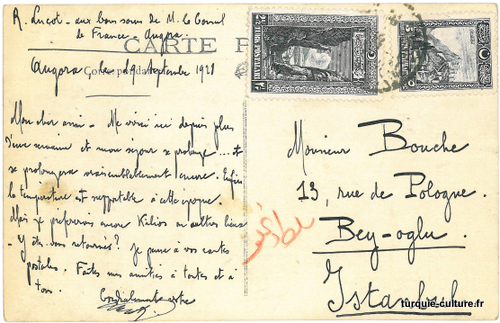 R. Lucot - aux bons soins de M. le Consul
de France - Angora
CARTE P
Correspondance
Angora le 19 septembre 1928
Mon cher ami - Me voici ici depuis plus
d'une semaine et mon séjour se prolonge ... et
se prolongera vraisemblablement encore. Enfin
la température est supportable à cette époque.
Mais je préférerais encore Kilios ou autres lieux
- Y êtes vous retourné? Je pense à vos cartes
postales. Faites mes amitiés à toutes et à
tous.
Cordialement votre
Monsieur Bouche
13, rue de Pologne.
Bey-oglu.
Istanbul
turquie-culture.fr